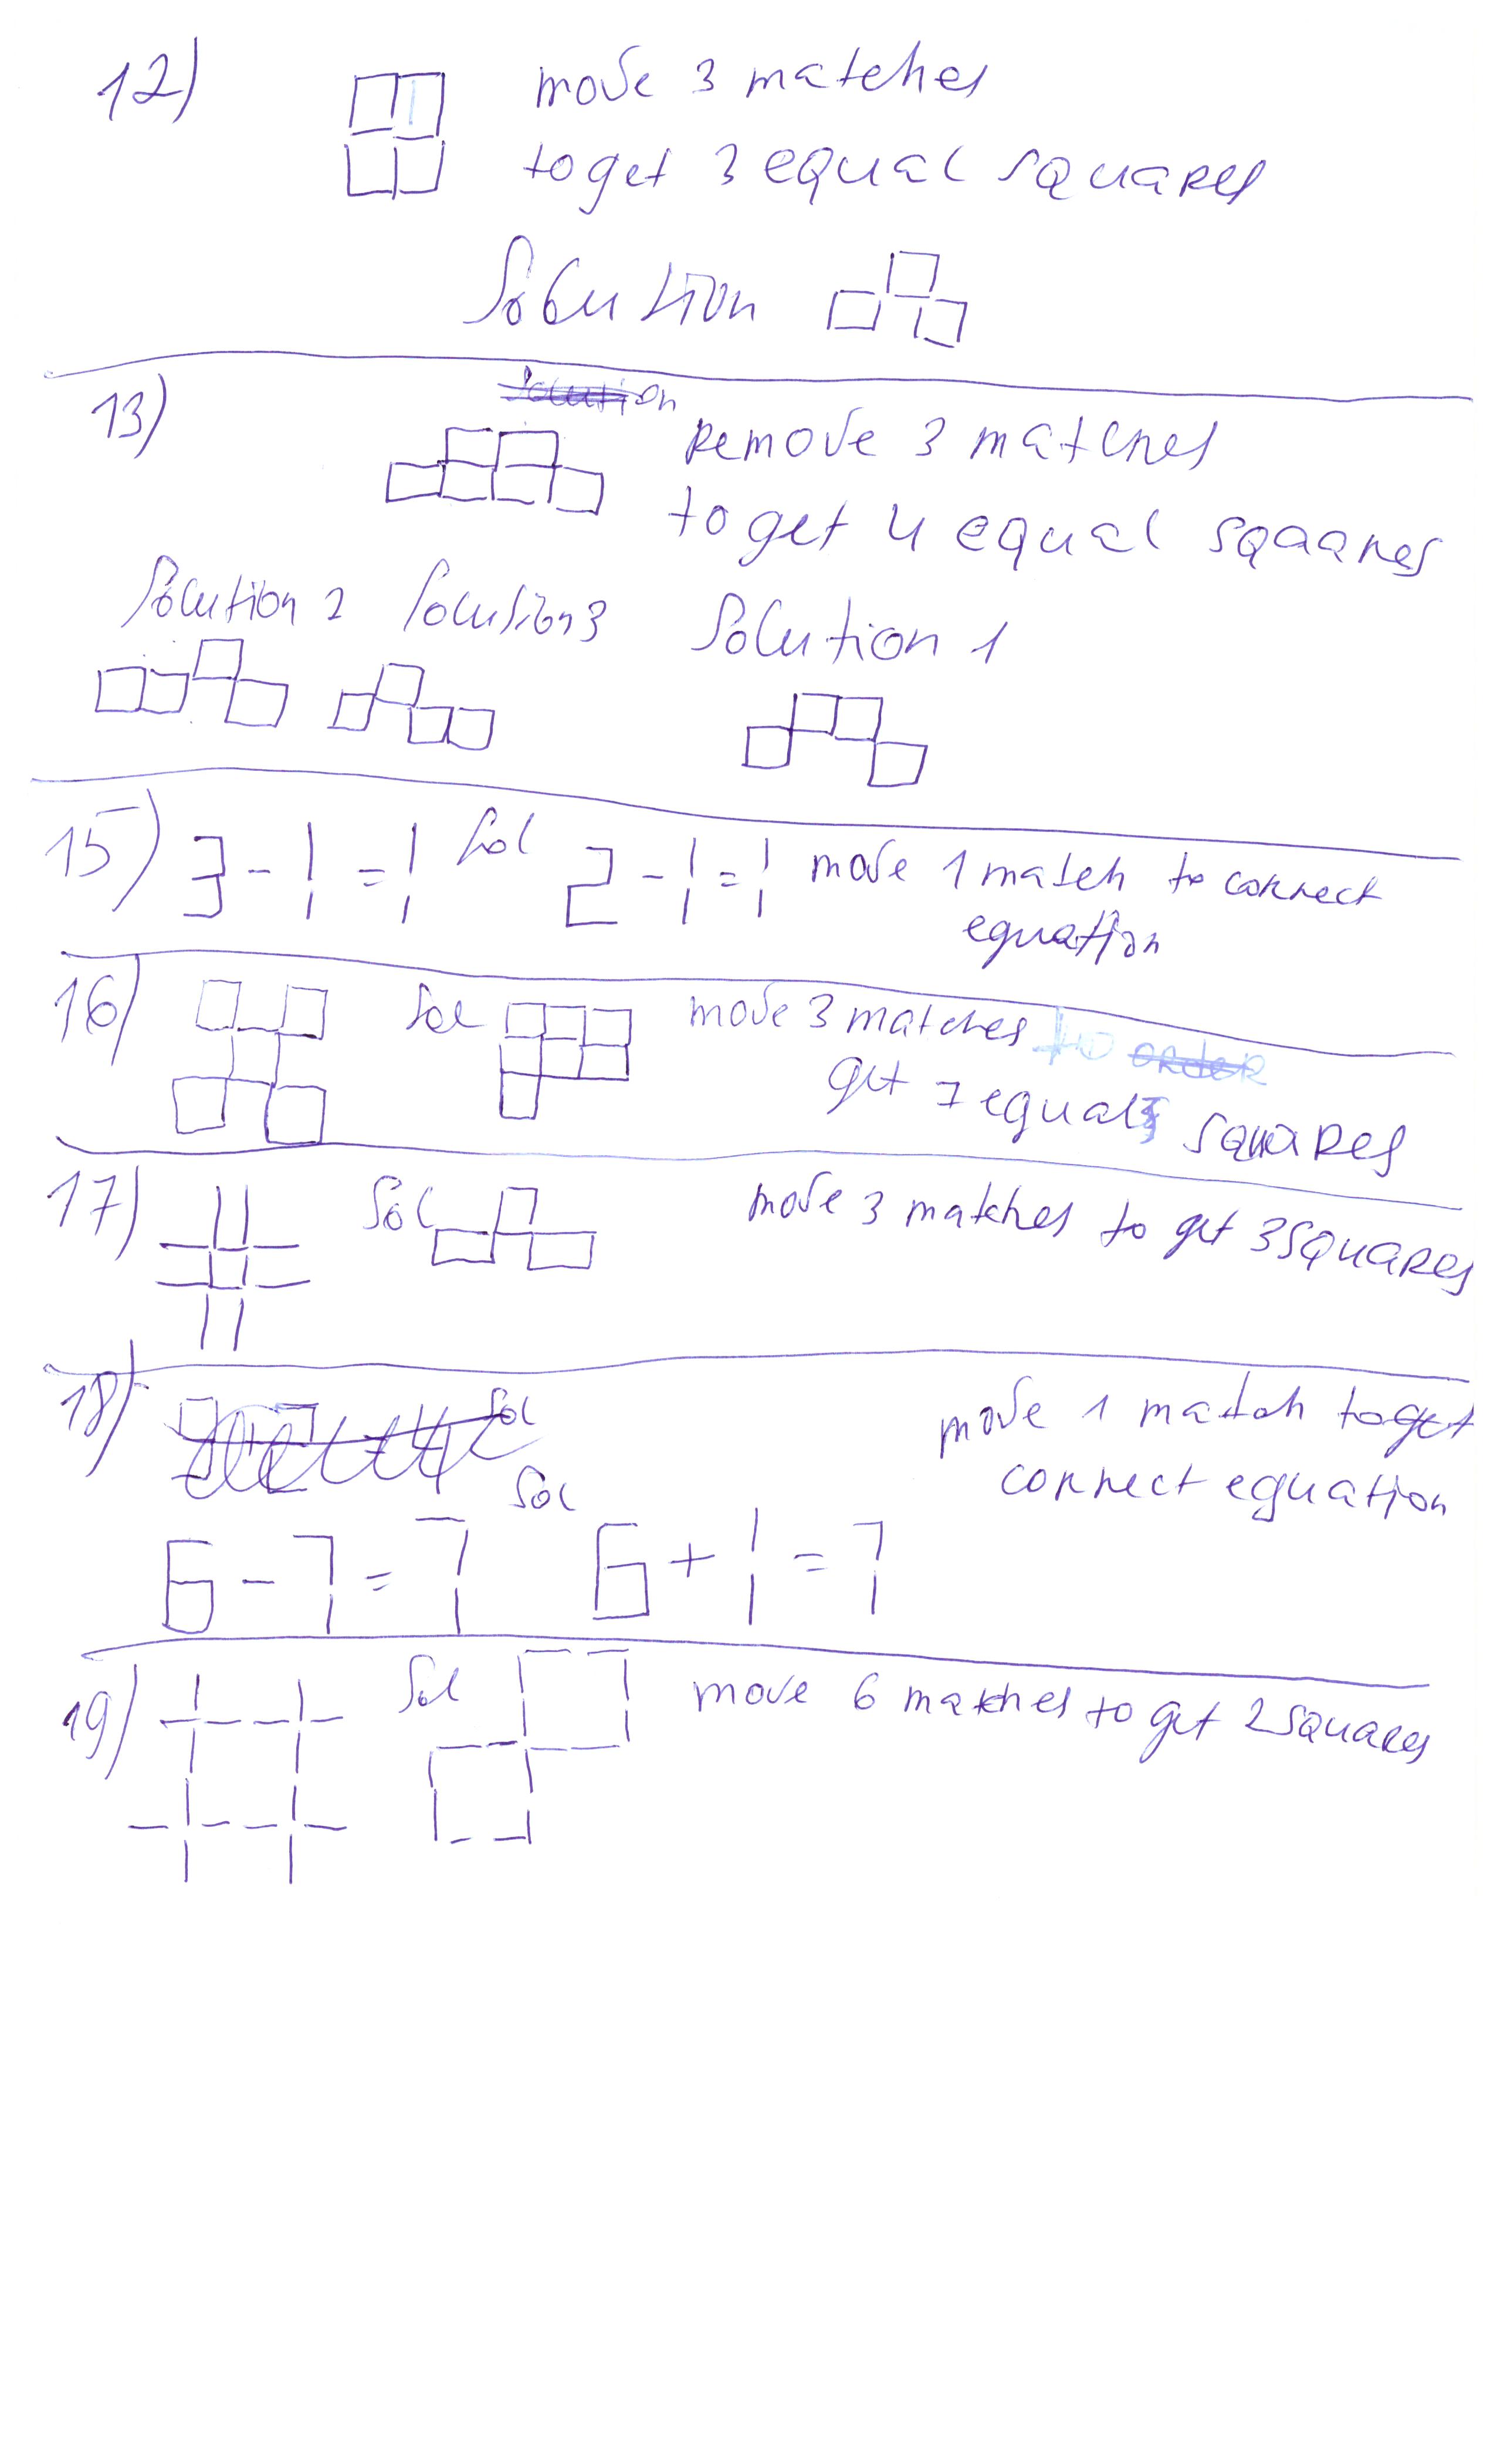 12) move 3 matches
to get 3 equal squares
Solution
13) Solution
Remove 3 matches
to get 4 equal sqaares
Solution 2 Solution 3 Solution 1
15) 3 - 1 = 1 Sol 2 - 1 = 1 move 1 match to correct
equation
16) Sol move 3 matches order
get 7 equal squares
17) Sol move 3 matches to get 3 squares
18) Sol move 1 match to get
correct equation
Sol
6 - 7 = 7 6 + 1 = 7
19) Sol move 6 matches to get 2 squares